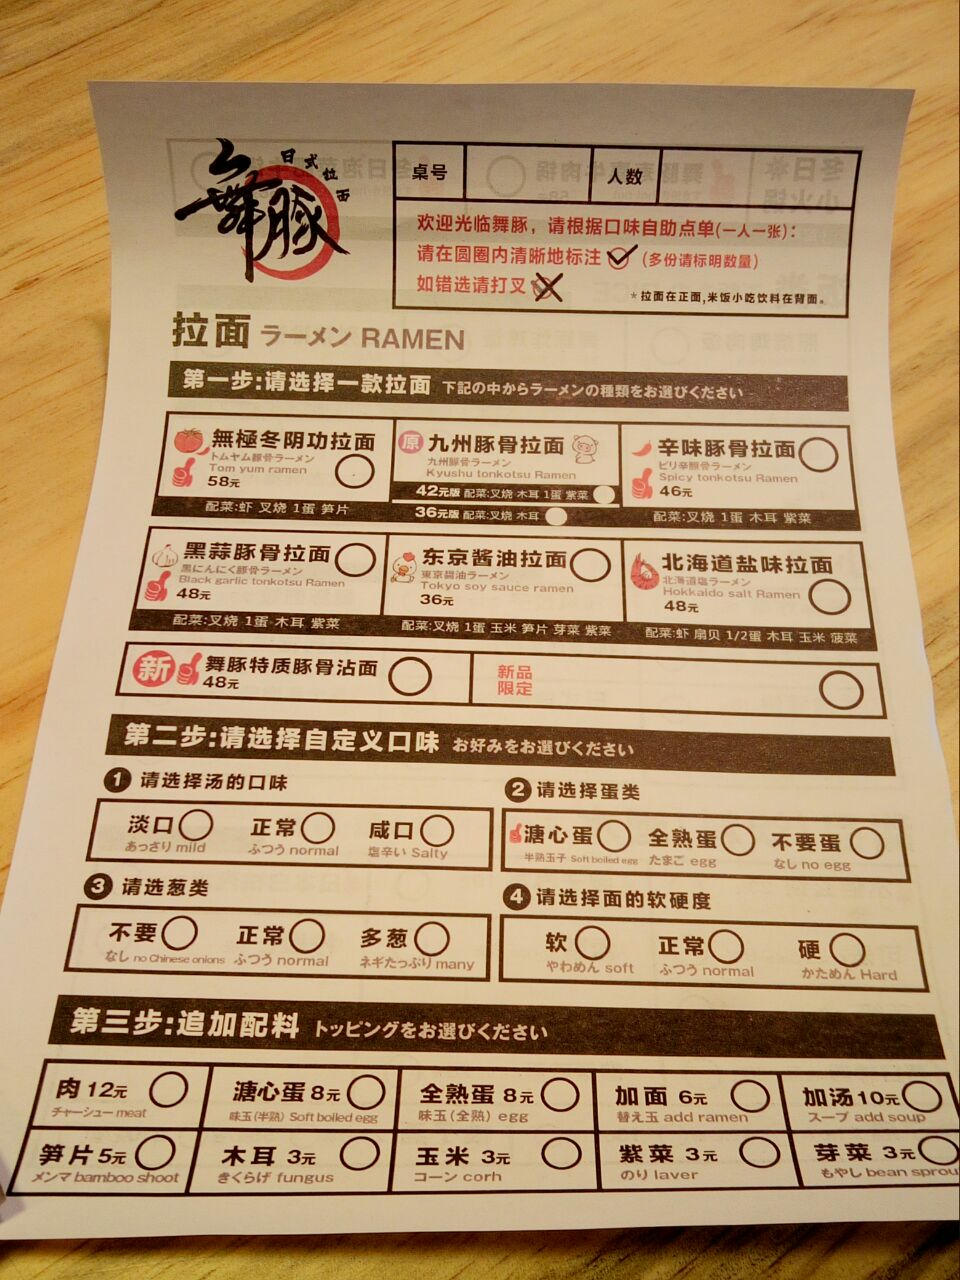 舞豚
日式拉面
桌号 人数
欢迎光临舞豚，请根据口味自助点单(一人一张)：
请在圆圈内清晰地标注 (多份请标明数量)
如错选请打叉
*拉面在正面,米饭小吃饮料在背面。
拉面 ラーメン RAMEN
第一步:请选择一款拉面 下記の中からラーメンの種類をお選びください
無極冬阴功拉面
トムヤム豚骨ラーメン
Tom yum ramen
58元
配菜:虾 叉烧 1蛋 笋片
原 九州豚骨拉面
九州豚骨ラーメン
Kyushu tonkotsu Ramen
42元版 配菜:叉烧 木耳 1蛋 紫菜
36元版 配菜:叉烧 木耳
辛味豚骨拉面
ピリ辛豚骨ラーメン
Spicy tonkotsu Ramen
46元
配菜:叉烧 1蛋 木耳 紫菜
黑蒜豚骨拉面
黒にんにく豚骨ラーメン
Black garlic tonkotsu Ramen
48元
配菜:叉烧 1蛋 木耳 紫菜
东京酱油拉面
東京醤油ラーメン
Tokyo soy sauce ramen
36元
配菜:叉烧 1蛋 玉米 笋片 芽菜 紫菜
北海道盐味拉面
北海道塩ラーメン
Hokkaido salt Ramen
48元
配菜:虾 扇贝 1/2蛋 木耳 玉米 菠菜
新 舞豚特质豚骨沾面
48元
新品
限定
第二步:请选择自定义口味 お好みをお選びください
1 请选择汤的口味
淡口 正常 咸口
あっさり mild ふつう normal 塩辛い Salty
2 请选择蛋类
溏心蛋 全熟蛋 不要蛋
半熟玉子 Soft boiled egg たまご egg なし no egg
3 请选葱类
不要 正常 多葱
なし no Chinese onions ふつう normal ネギたっぷり many
4 请选择面的软硬度
软 正常 硬
やわめん soft ふつう normal かためん Hard
第三步:追加配料 トッピングをお選びください
肉 12元 溏心蛋 8元 全熟蛋 8元 加面 6元 加汤 10元
チャーシュー meat 味玉(半熟) Soft boiled egg 味玉(全熟) egg 替え玉 add ramen スープ add soup
笋片 5元 木耳 3元 玉米 3元 紫菜 3元 芽菜 3元
メンマ bamboo shoot きくらげ fungus コーン corh のり laver もやし bean sprou